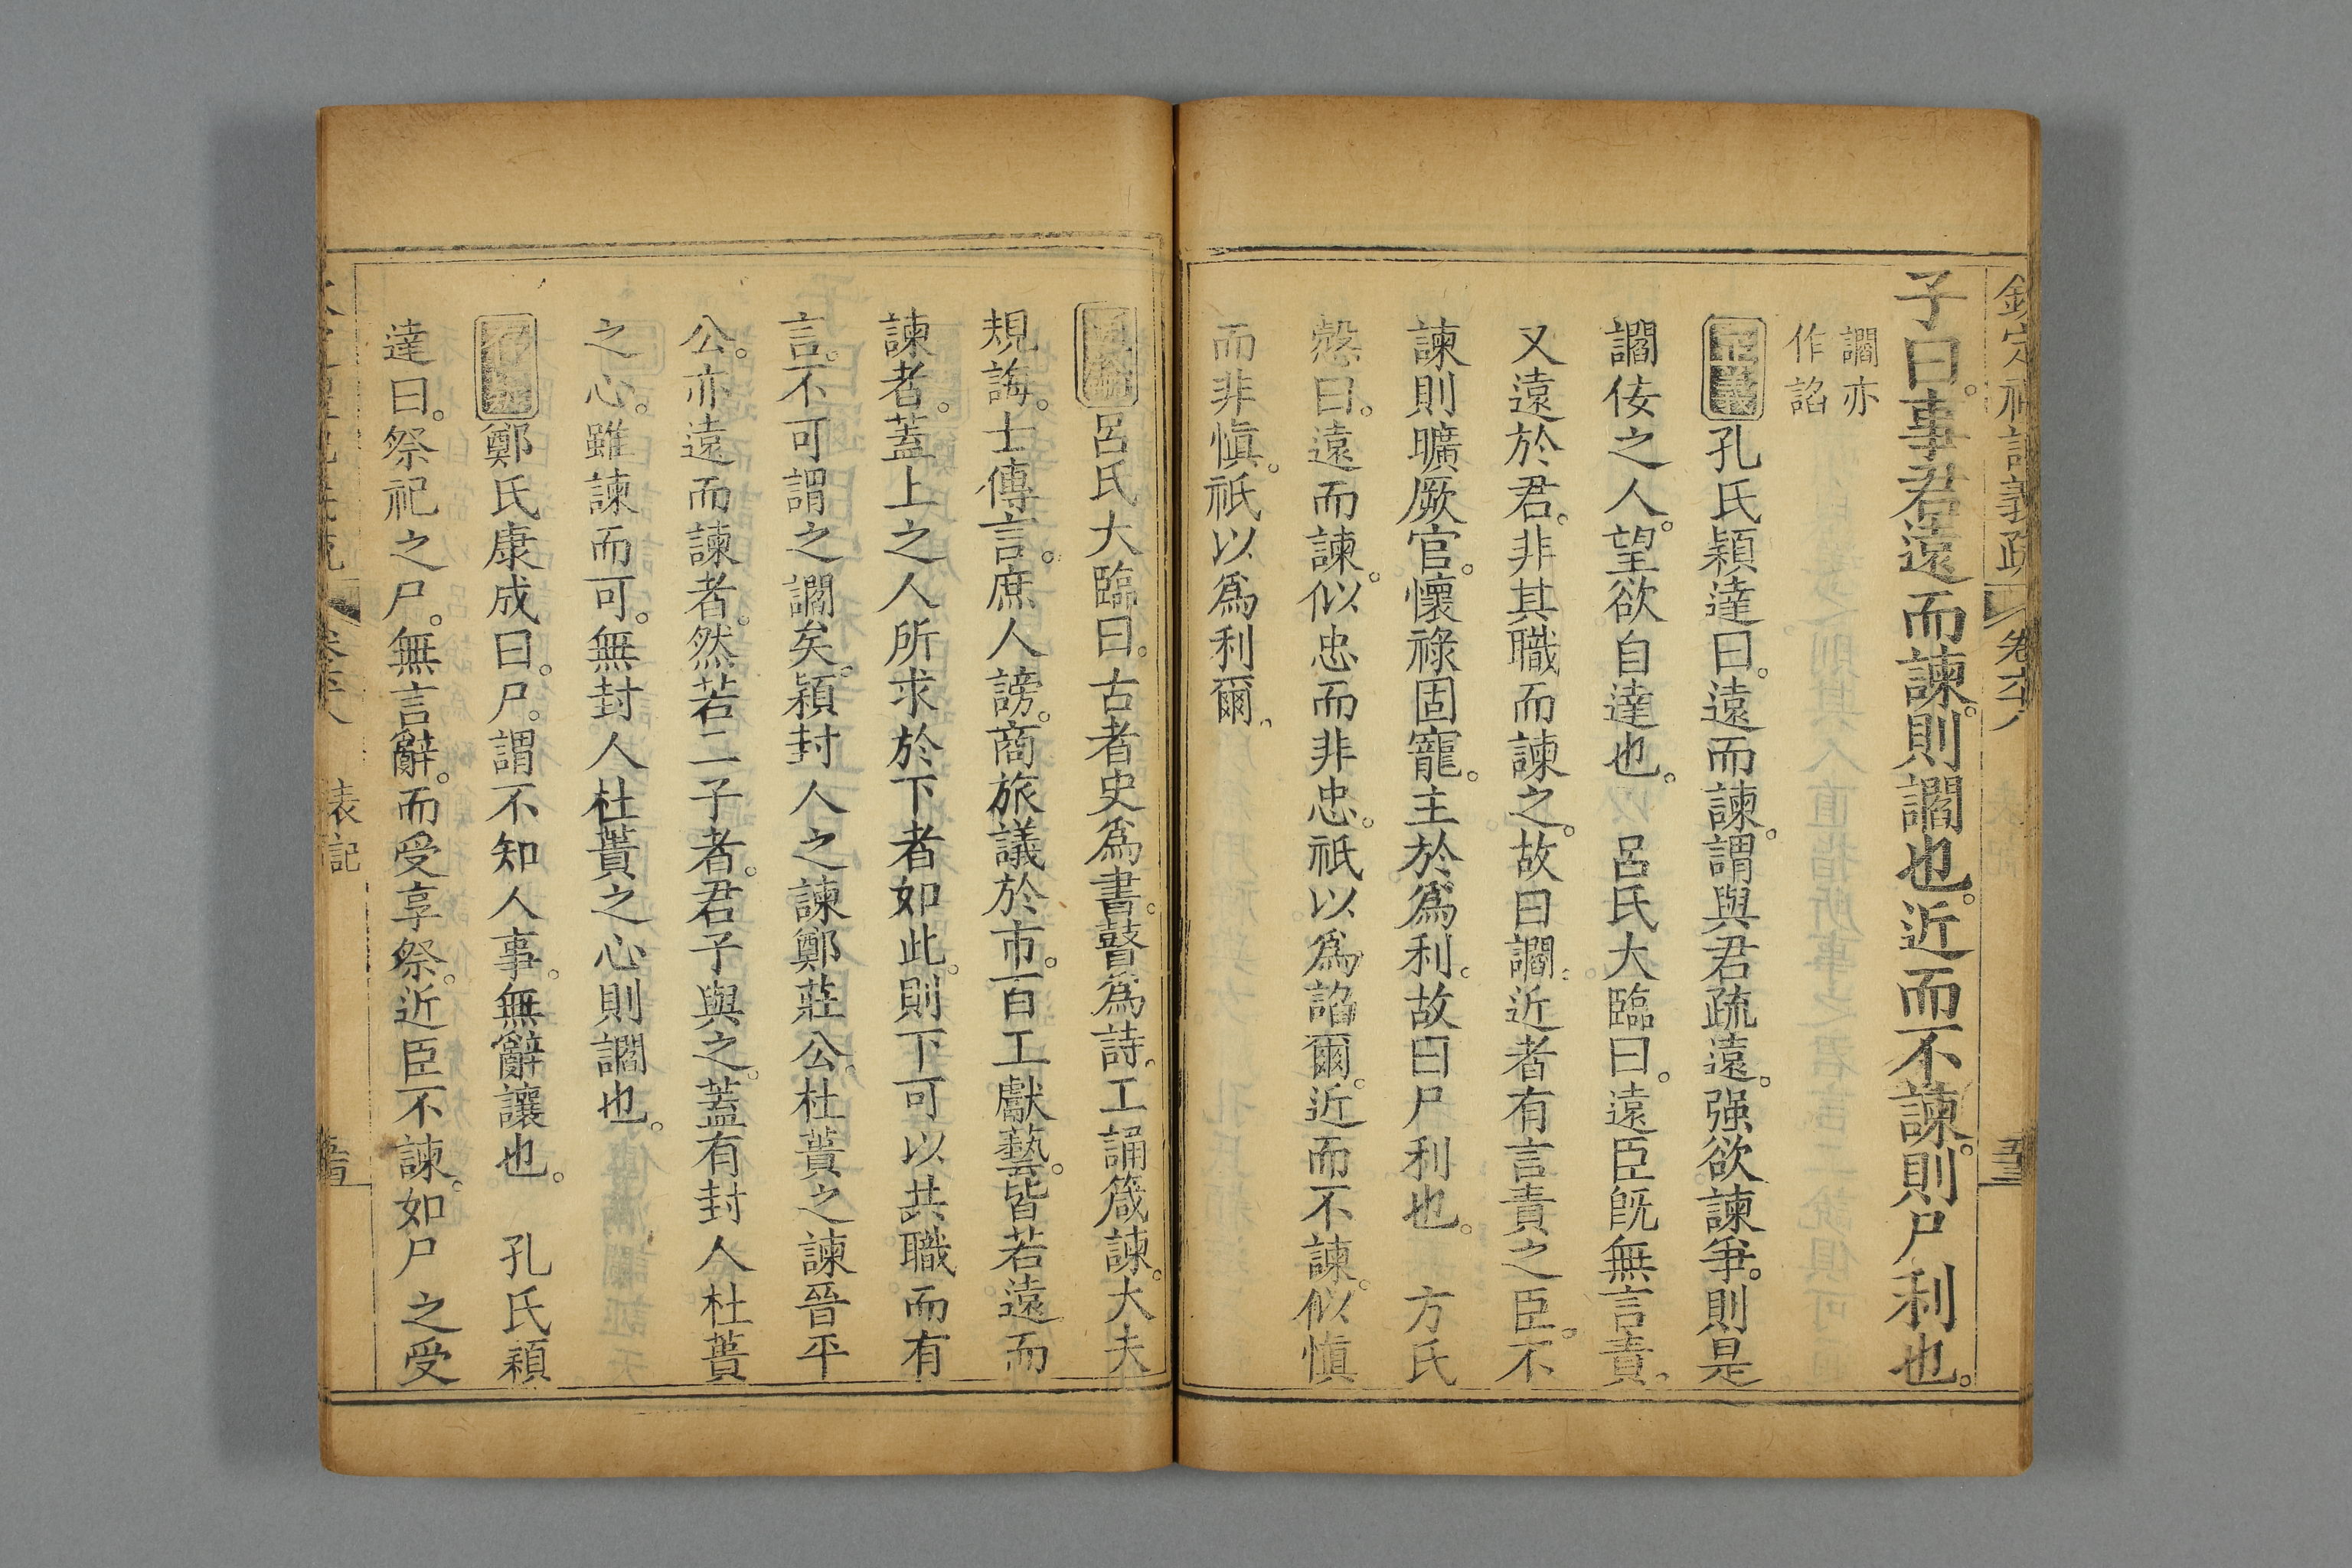 欽定禮記義疏 卷六十八
子曰。事君遠而諫。則讇也。近而不諫。則尸利也。
讇亦
作諂
正義孔氏穎達曰。遠而諫。謂與君疏遠。强欲諫爭。則是
讇佞之人。望欲自達也。 呂氏大臨曰。遠臣旣無言責。
又遠於君。非其職而諫之。故曰讇。近者有言責之臣。不
諫則曠厥官。懷祿固寵。主於爲利。故曰尸利也。 方氏
慤曰。遠而諫。似忠而非忠。祇以爲諂爾。近而不諫。似愼
而非愼。祇以爲利爾。
通論呂氏大臨曰。古者史爲書。瞽爲詩。工誦箴諫。大夫
規誨。士傳言。庶人謗。商旅議於市。百工獻藝。皆若遠而
諫者。蓋上之人所求於下者如此。則下可以共職而有
言。不可謂之讇矣。潁封人之諫鄭莊公。杜蕢之諫晉平
公。亦遠而諫者。然若二子者。君子與之。蓋有封人杜蕢
之心。雖諫而可。無封人杜蕢之心則讇也。
存疑鄭氏康成曰。尸。謂不知人事。無辭讓也。 孔氏穎
達曰。祭祀之尸。無言辭。而受享祭。近臣不諫。如尸之受
卷六十八 表記